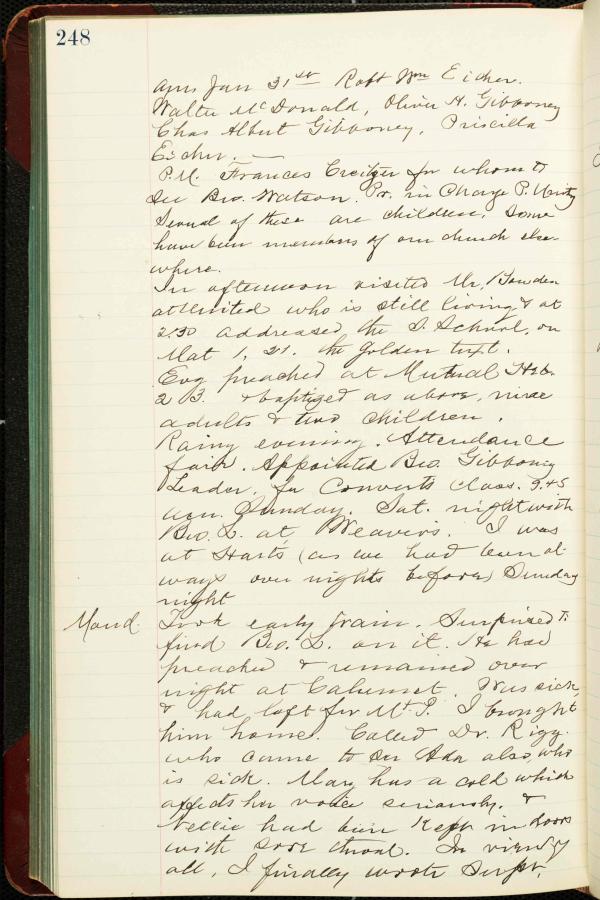 248
Jan 31st Robt Wm Eicher.
Walter McDonald, Oliver H. Gibboney
Chas Albert Gibboney, Priscilla
Eicher. —
P.M. Frances for whom to
see Bro. Watson. Pr. in Charge P. Unity
Several of these are children. Some
have been members of our church else-
where.
In afternoon visited Mr. Bowden
at United who is still living & at
2.30 addressed the S. School, on
Mat 1, 21. the golden text.
Evg preached at Mutual Heb.
2 B. & baptized as above, nine
adults & two children.
Rainy evening. Attendance
fair. Appointed Bro. Gibboney
Leader, for Converts Class. 9.45
Sunday. Sat. night with
Bro. L. at Weavers. I was
at Harts (as we had been al-
ways over nights before) Sunday
night
Mond. Took early train. Surprised to
find Bro. L. on it. He had
preached & remained over
night at Calumet. Was sick,
& had left for Mt. P. I brought
him home. Called Dr. Rigg.
who came to see Ada also, who
is sick. Mary has a cold which
affects her voice seriously, &
Nellie had been kept in doors
with sore throat. In view of
all, I finally wrote Supt,